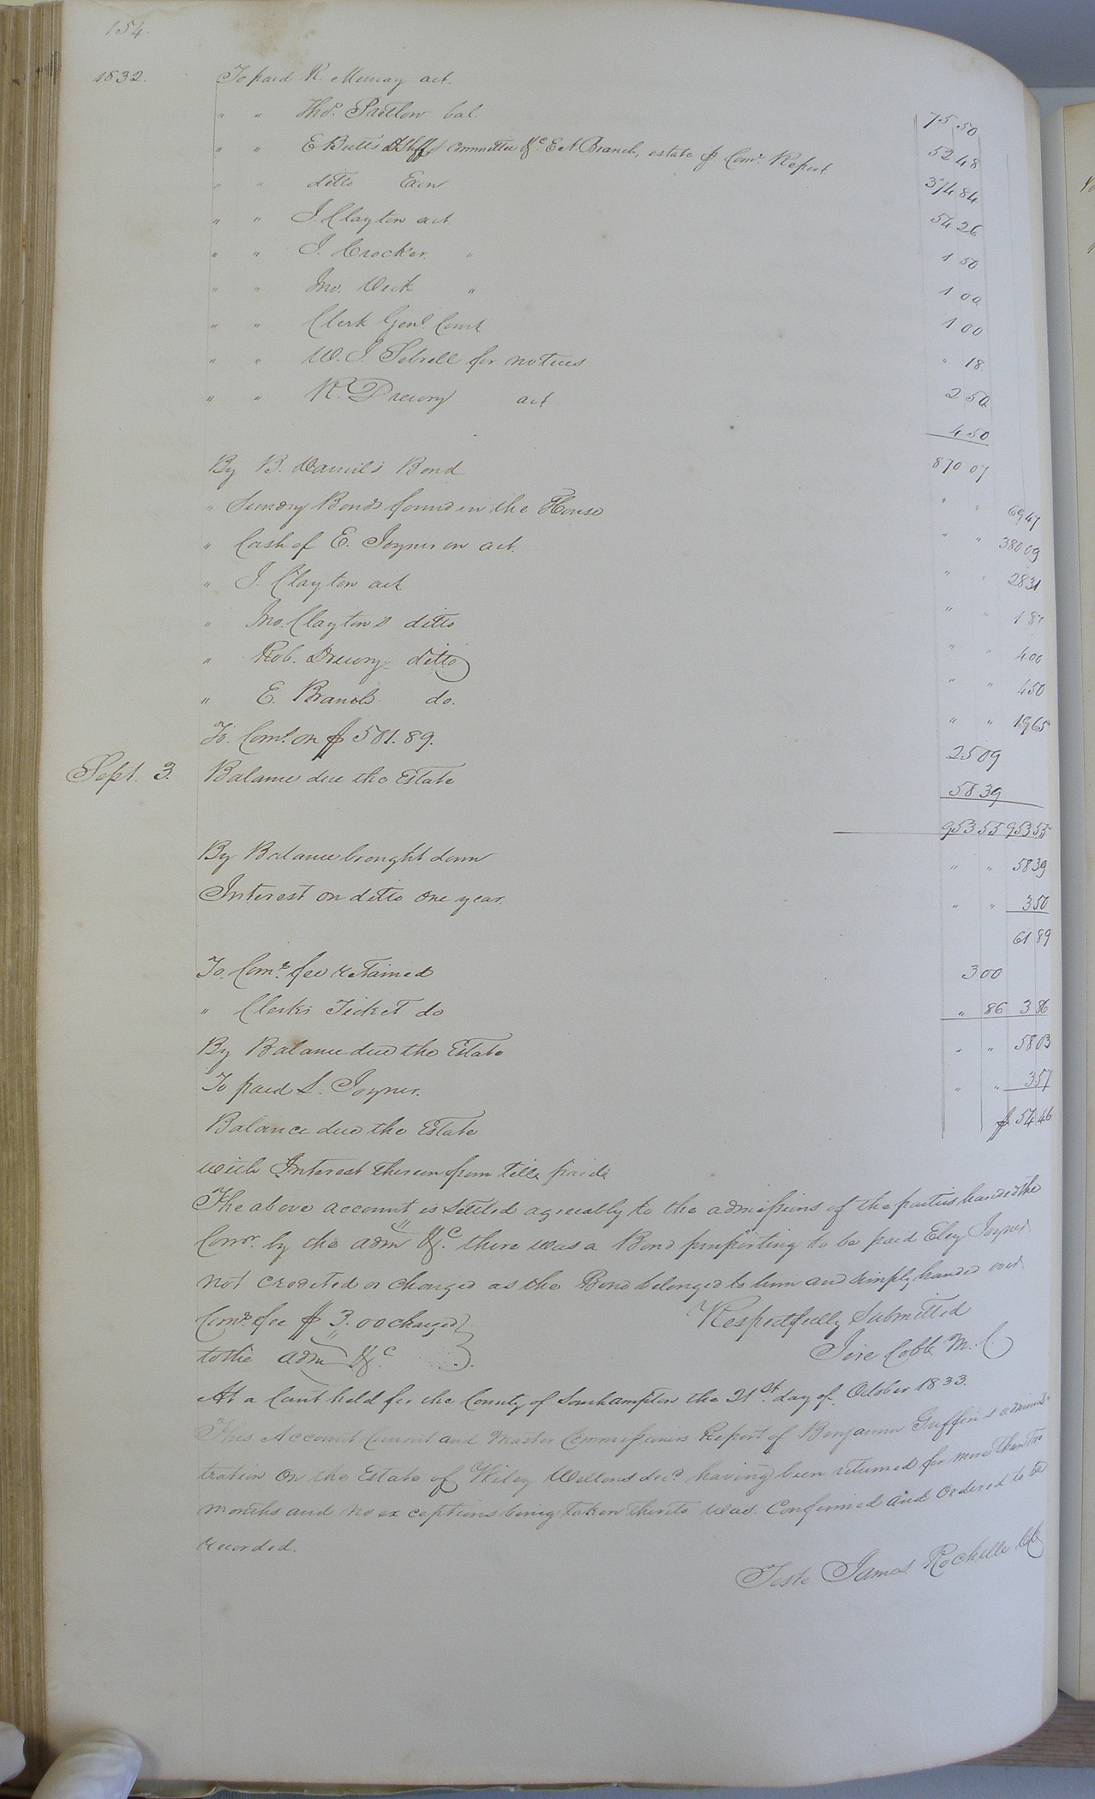 154.
1832. To paid R. Murray act. 75 50
" " Thos. Portlow bal. 52 48
" " E Butts committee &c. E A Branch, estate $ Comr. Report 374 84
" " ditto Exor 54 26
" " J. Clayton act. 1 50
" " J. Crocker. " 1 00
" " Jno. Vick " 1 00
" " Clerk Genl. Court " 18
" " W. J. Sebrell for notices 2 50
" " R. Drewry act 4 50
870 07
By B. Daniel's Bond " " 69 47
" Sundry Bonds found in the House " " 380 09
" Cash of E. Joyner on act. " " 28 31
" J. Clayton act " " 1 87
" Jno. Clayton's ditto " " 4 00
" Rob. Drewry ditto " " 4 50
" E. Branch do. " " 19 65
To Coms. on $ 501.89. 25 09
Sept. 3. Balance due the Estate 58 39
953 55 953 55
By Balance brought down " " 58 39
Interest on ditto one year. " " 3 50
61 89
To Comr. fee retained 3 00
" Clerks Ticket do " 86 3 86
By Balance due the Estate " " 58 03
To paid S. Joyner. " " 3 57
Balance due the Estate $ 54 46
with Interest thereon from till paid
The above account is settled agreeably to the admissions of the parties handed the
Comr. by the adm &c. there was a Bond purporting to be paid Eley Joyner
not credited or charged as the Bond belonged to him and simply handed over
Comr. fee $ 3.00 charged Respectfully Submitted
to the adm &c. Jere Cobb M. C
At a Court held for the County of Southampton the 21st. day of October 1833.
This Account Current and Master Commissioners Report of Benjamin Griffin's adminis-
tration on the Estate of Wiley Wellons decd. having been returned for more than two
months and no exceptions being taken thereto was Confirmed and Ordered to be
recorded.
Teste James Rochelle Clk